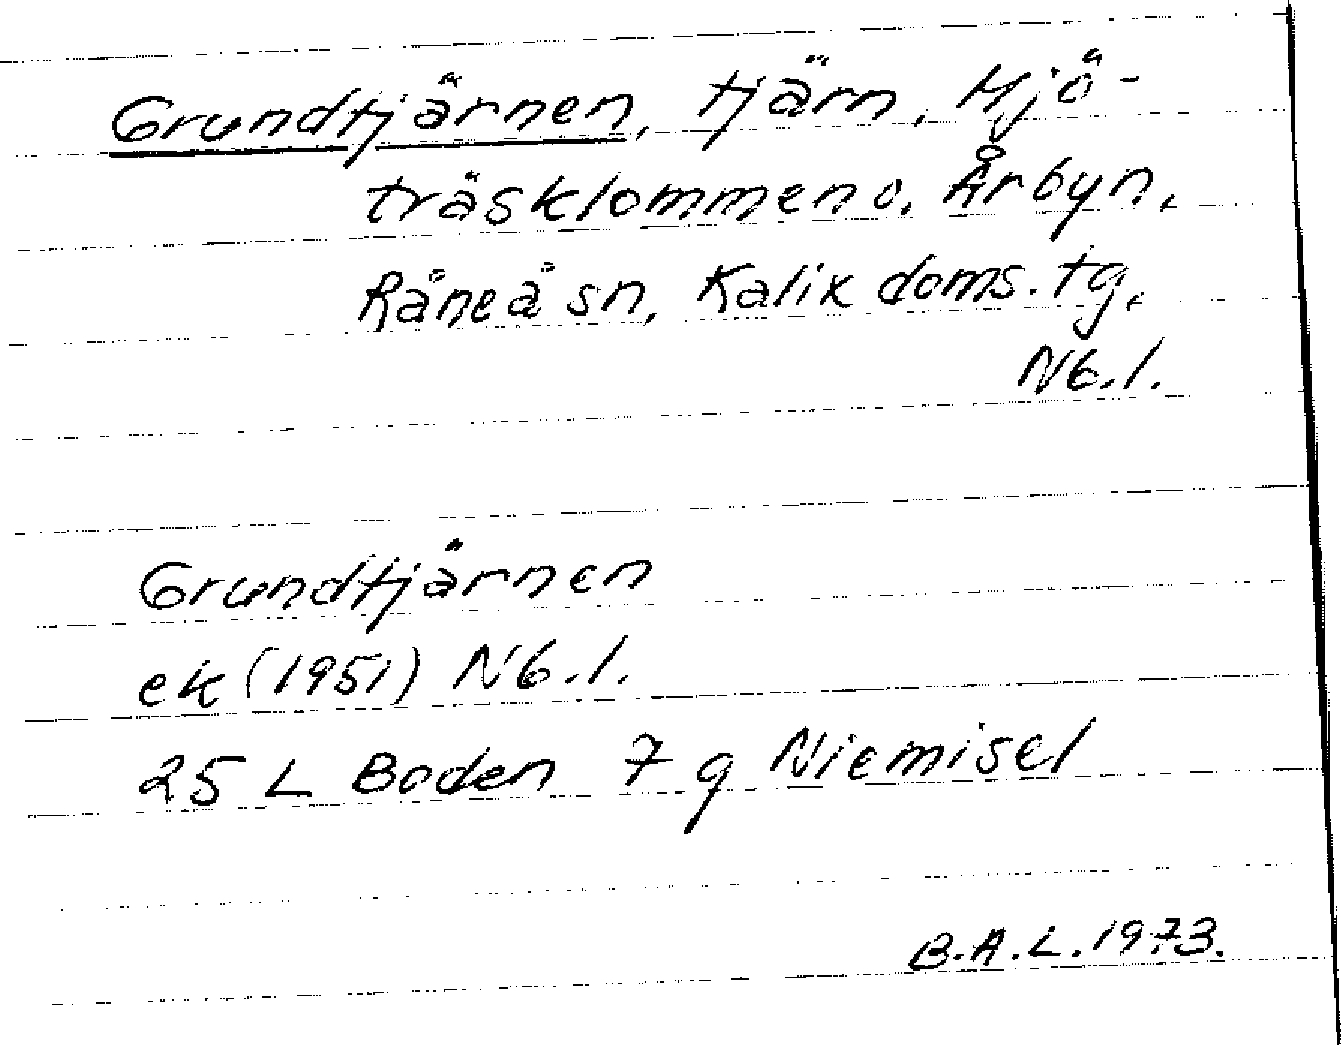 Grundtjärnen, tjärn, Hjö-
träsklommen o. Årbyn,
Råneå sn, Kalix doms. tg,
Nb.l.
Grundtjärnen
ek (1951) Nb.l.
25 L Boden 7 g Niemisel
B.A.L. 1973.